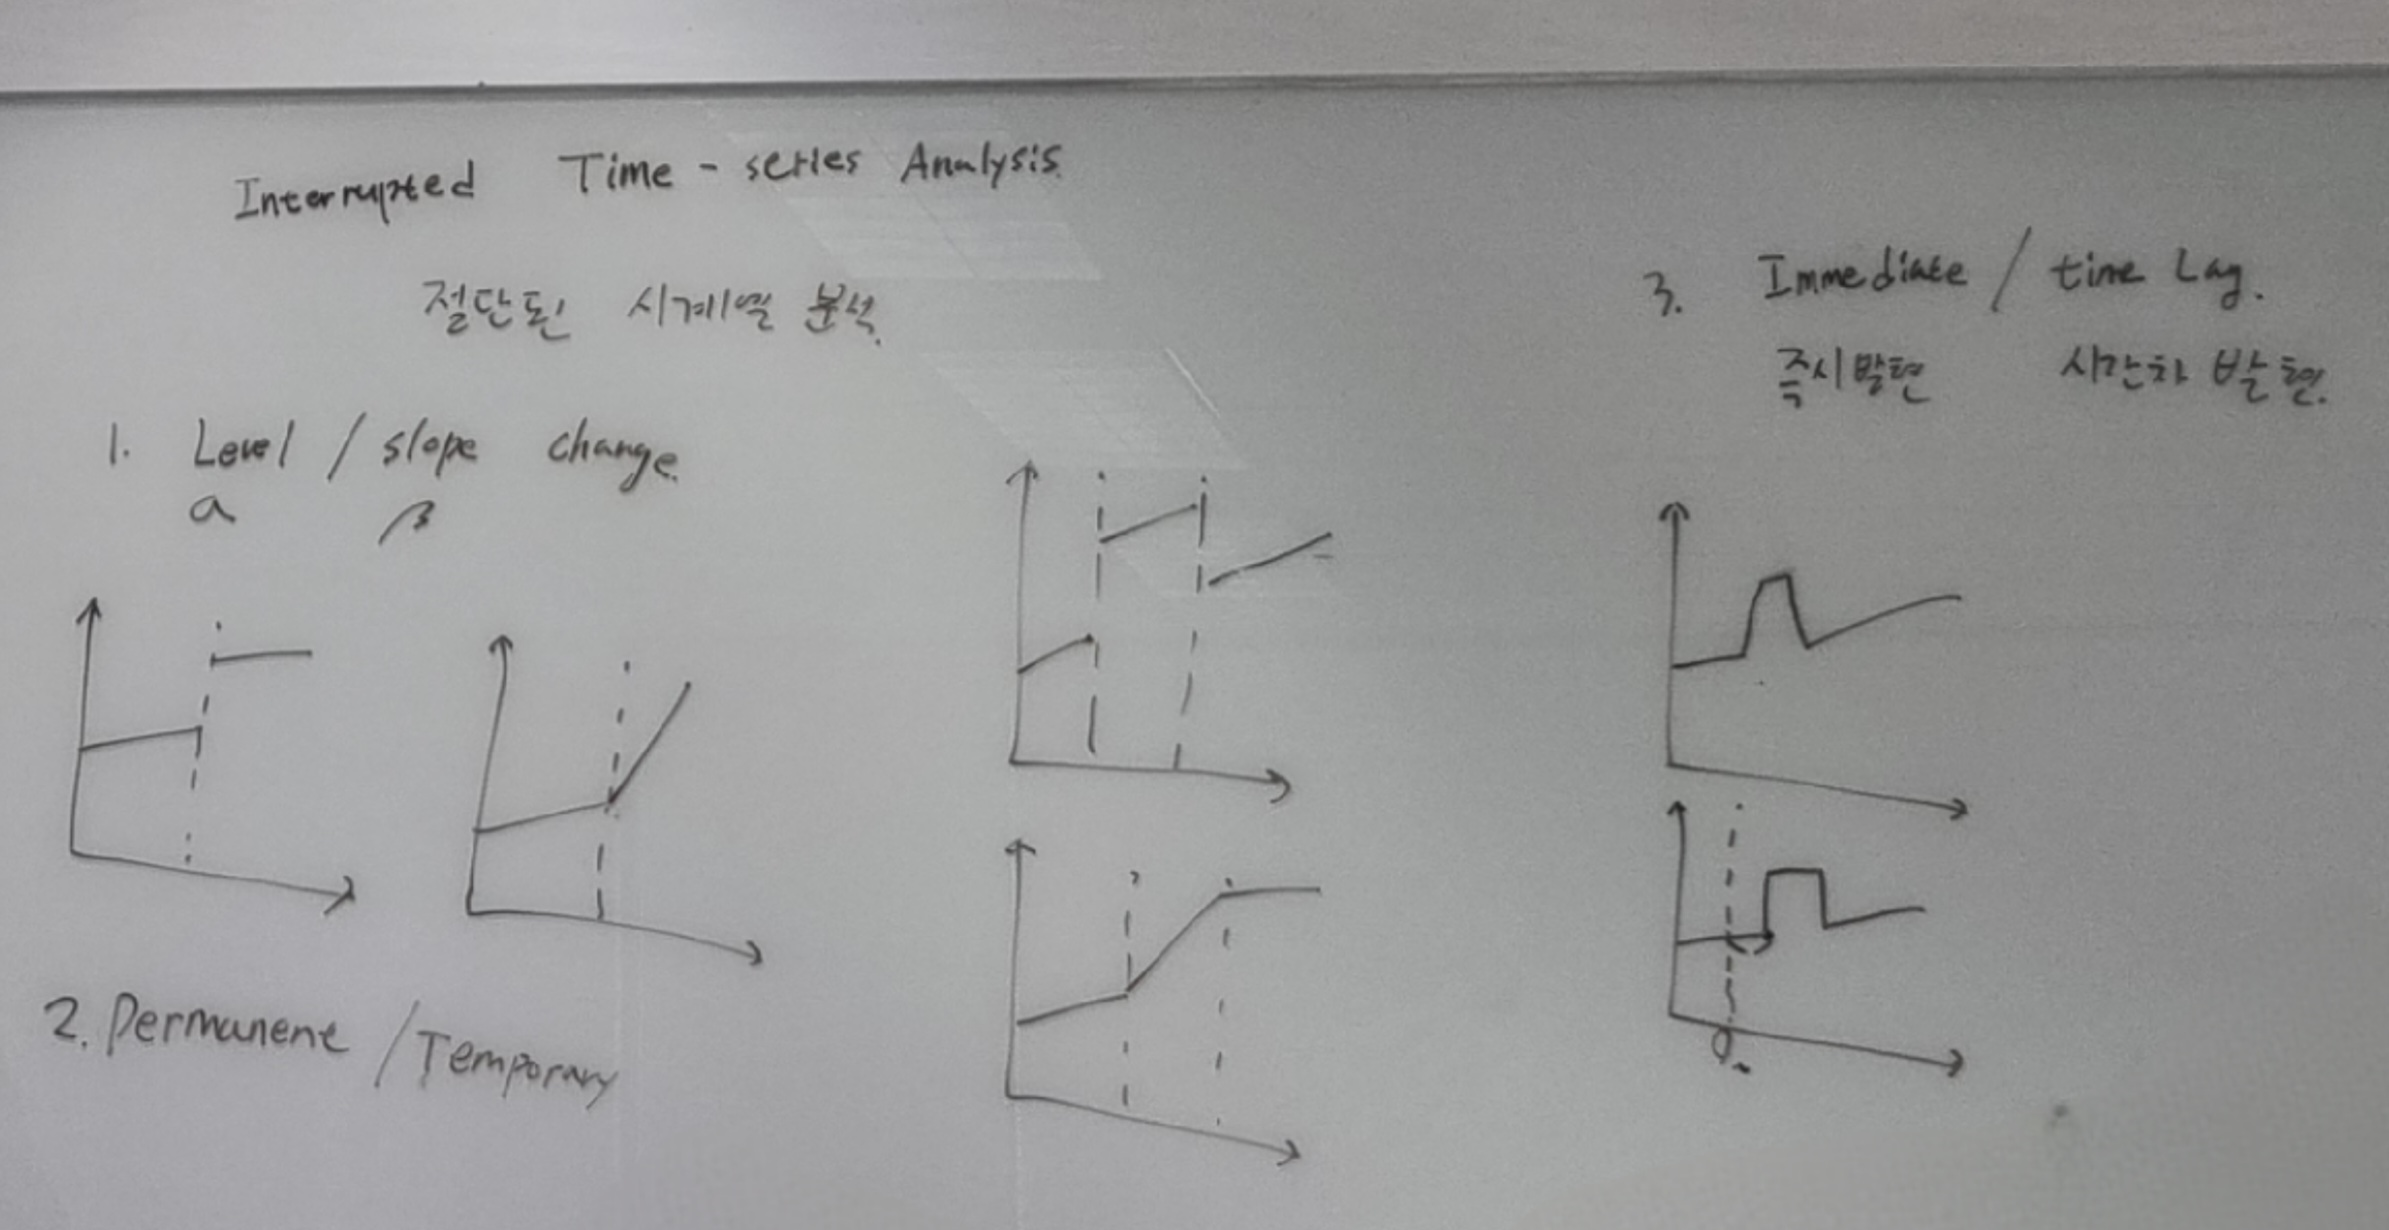 Interrupted Time - series Analysis.
절단된 시계열 분석.
1. Level / slope change.
a β
2. Permanent / Temporary
3. Immediate / time Lag.
즉시발현 시간차 발현.